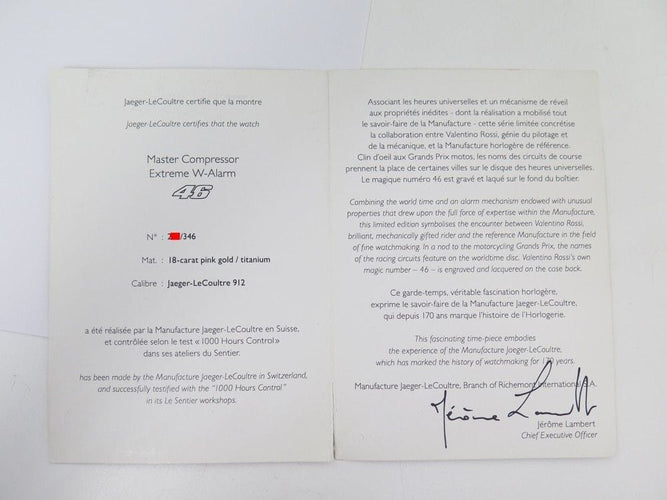 Jaeger-LeCoultre certifie que la montre
Jaeger-LeCoultre certifies that the watch
Master Compressor
Extreme W-Alarm
46
N° : 2 /346
Mat. : 18-carat pink gold / titanium
Calibre : Jaeger-LeCoultre 912
a été réalisée par la Manufacture Jaeger-LeCoultre en Suisse,
et contrôlée selon le test «1000 Hours Control»
dans ses ateliers du Sentier.
has been made by the Manufacture Jaeger-LeCoultre in Switzerland,
and successfully testified with the "1000 Hours Control"
in its Le Sentier workshops.
Associant les heures universelles et un mécanisme de réveil
aux propriétés inédites - dont la réalisation a mobilisé tout
le savoir-faire de la Manufacture - cette série limitée concrétise
la collaboration entre Valentino Rossi, génie du pilotage et
de la mécanique, et la Manufacture horlogère de référence.
Clin d'oeil aux Grands Prix motos, les noms des circuits de course
prennent la place de certaines villes sur le disque des heures universelles.
Le magique numéro 46 est gravé et laqué sur le fond du boîtier.
Combining the world time and an alarm mechanism endowed with unusual
properties that drew upon the full force of expertise within the Manufacture,
this limited edition symbolises the encounter between Valentino Rossi,
brilliant, mechanically gifted rider and the reference Manufacture in the field
of fine watchmaking. In a nod to the motorcycling Grands Prix, the names
of the racing circuits feature on the worldtime disc. Valentino Rossi's own
magic number – 46 – is engraved and lacquered on the case back.
Ce garde-temps, véritable fascination horlogère,
exprime le savoir-faire de la Manufacture Jaeger-LeCoultre,
qui depuis 170 ans marque l'histoire de l'Horlogerie.
This fascinating time-piece embodies
the experience of the Manufacture Jaeger-LeCoultre,
which has marked the history of watchmaking for 170 years.
Manufacture Jaeger-LeCoultre, Branch of Richemont International S.A.
Jérôme Lambert
Jérôme Lambert
Chief Executive Officer